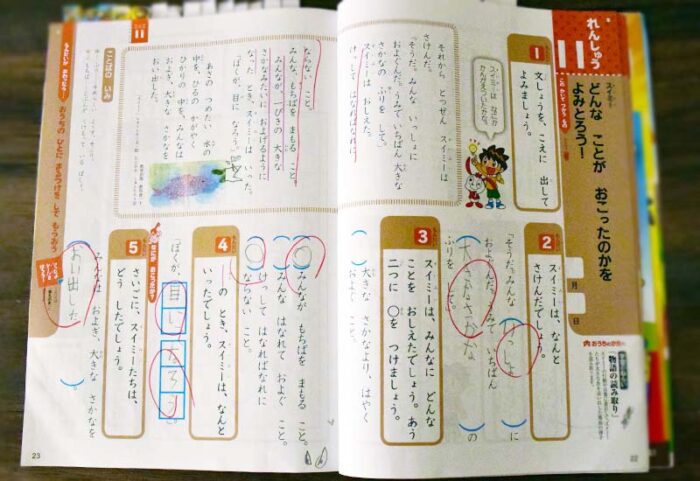 れんしゅう
11
スイミー
どんな ことが おこったのかを
よみとろう！
月
日
おうちのかたへ
物語の読み取り
1
文しょうを、こえに 出して
よみましょう。
スイミーは なにを
かんがえついたかな。
それから とつぜん スイミーは
さけんだ。
「そうだ。みんな いっしょに
およぐんだ。うみで いちばん 大きな
さかなの ふりを して。」
スイミーは おしえた。
けっして はなればなれに
ならない こと。
みんな、もちばを まもる こと。
みんなが、一ぴきの 大きな
さかなみたいに およげるように
なった とき、スイミーは いった。
「ぼくが、目に なろう。」
あさの つめたい 水の
中を、ひるの かがやく
ひかりの 中を、みんなは
およぎ、大きな さかなを
おい出した。
2
スイミーは、なんと
さけんだでしょう。
「そうだ。みんな
(いっしょ)に
およぐんだ。うみで いちばん
(大きなさかな)の
ふりを して。」
3
スイミーは、みんなに どんな
ことを おしえたでしょう。あう
二つに ○を つけましょう。
( )大きな さかなより、はやく
およぐ こと。
(○)けっして はなればなれに
ならない こと。
( )みんな はなれて およぐ こと。
(○)みんなが もちばを まもる こと。
4
の とき、スイミーは、なんと
いったでしょう。
「ぼくが、目に なろう。」
5
さいごに、スイミーたちは、
どう したでしょう。
みんなは およぎ、大きな さかなを
(おい出した)。
ことばの いみ
おうちの ひとに まるつけを して もらおう
22
23